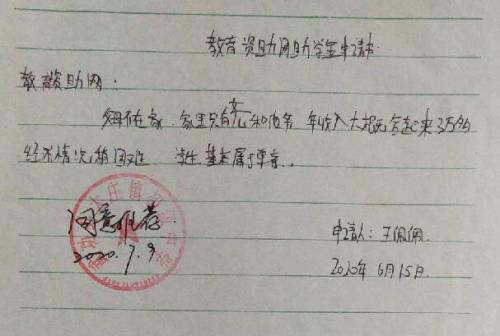 教育资助网助学金申请书
教育资助网:
父母不在家,家里只有 和 年收入大概 合起来3万多
经济情况稍困难,学生基本属于单亲。
同意推荐
2020.7.9
大庄镇
申请人:王佩佩
2020年6月15日